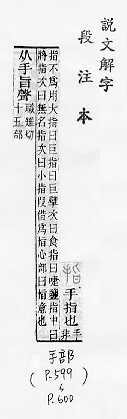 說文解字
段注本
指 手指也 手非
指不爲用大指曰巨指曰巨擘次曰食指曰啑鹽指中曰
將指次曰無名指次曰小指叚借爲恉心部曰恉意也
从手旨聲 職雉切
十五部
手部
(P.599
&
P.600)